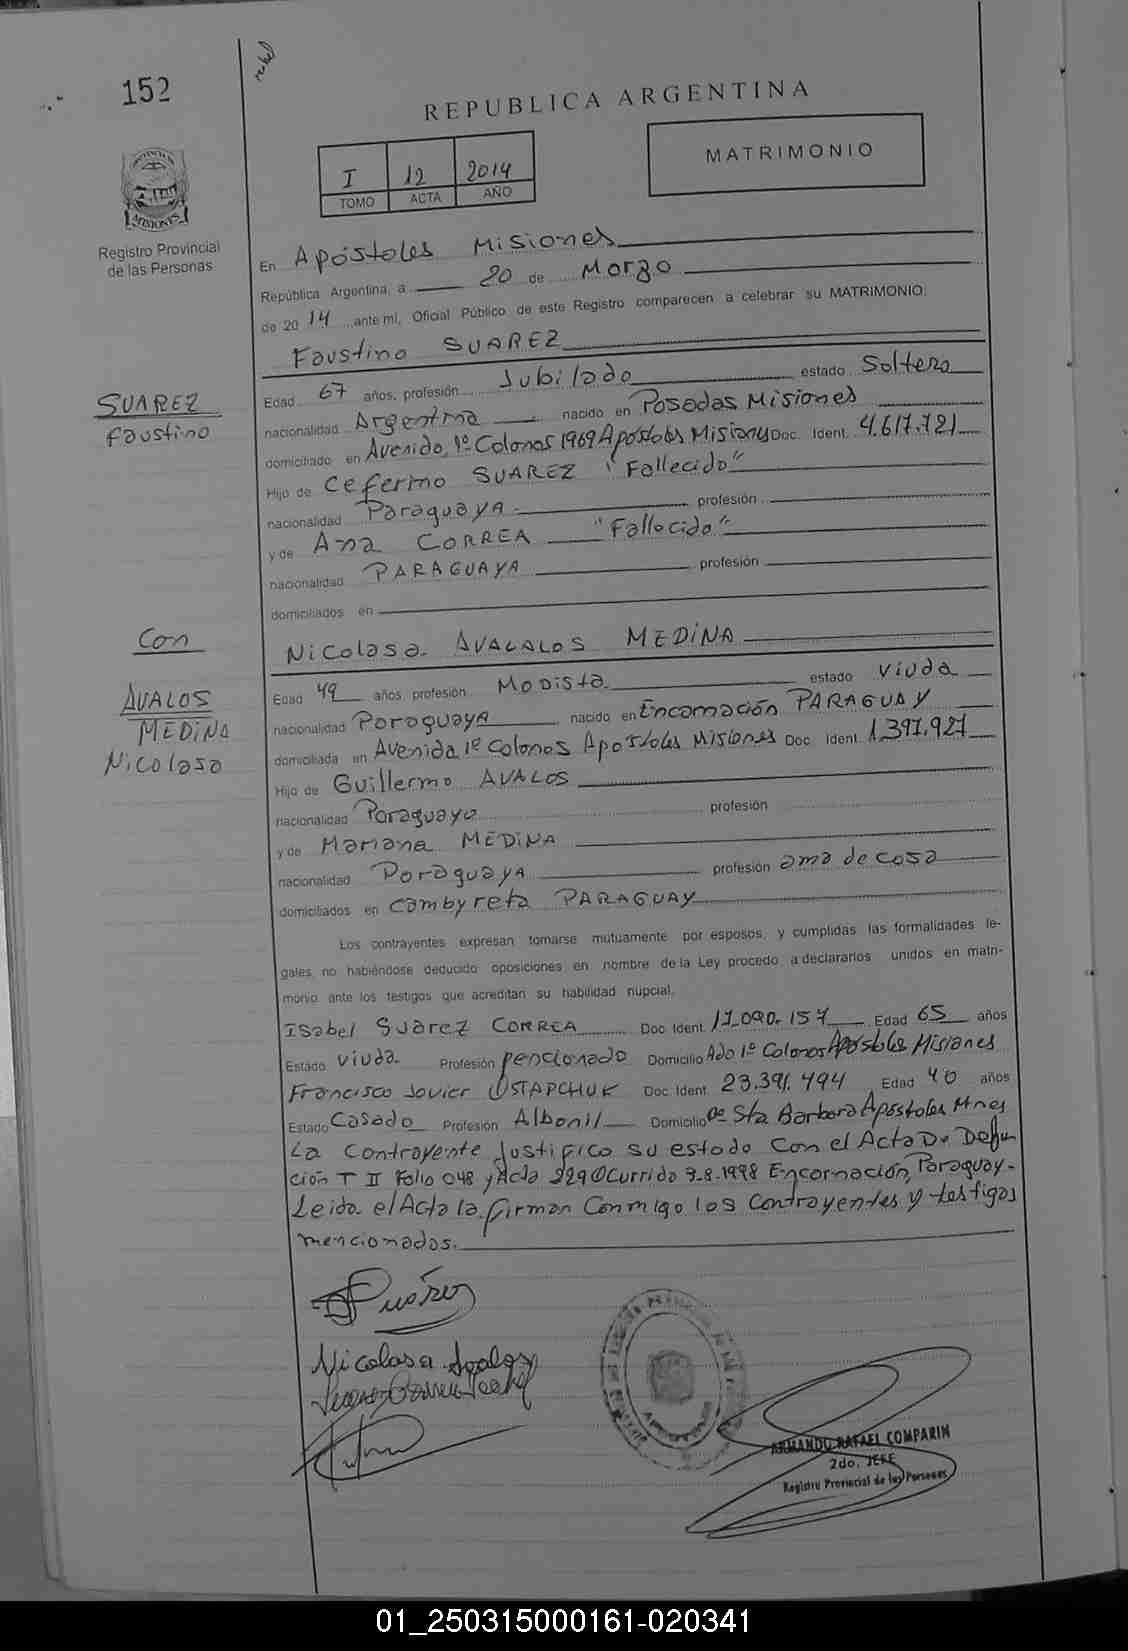 152
REPUBLICA ARGENTINA
I 12 2014
TOMO ACTA AÑO
MATRIMONIO
PROVINCIA DE
MISIONES
Registro Provincial
de las Personas
En Apóstoles Misiones
República Argentina, a 20 de Marzo
de 20 14 ante mí, Oficial Público de este Registro comparecen a celebrar su MATRIMONIO:
Faustino SUAREZ
SUAREZ
Faustino
Edad 67 años, profesión Jubilado estado Soltero
nacionalidad Argentina nacido en Posadas Misiones
domiciliado en Avenida 1º Colonos 1969 Apóstoles Misiones Doc. Ident. 4.617.721
Hijo de Ceferino SUAREZ "Fallecido"
nacionalidad Paraguaya profesión
y de Ana CORREA "Fallecido"
nacionalidad PARAGUAYA profesión
domiciliados en
Con
Nicolasa AVALALOS MEDINA
AVALOS
MEDINA
Nicolasa
Edad 49 años, profesión Modista estado Viuda
nacionalidad Paraguaya nacido en Encarnación PARAGUAY
domiciliada en Avenida 1º Colonos Apostoles Misiones Doc. Ident. 1.391.927
Hija de Guillermo AVALOS
nacionalidad Paraguayo profesión
y de Mariana MEDINA
nacionalidad Paraguaya profesión ama de casa
domiciliados en Cambyreta PARAGUAY
Los contrayentes expresan tomarse mutuamente por esposos, y cumplidas las formalidades le-
gales, no habiéndose deducido oposiciones en nombre de la Ley procedo a declararlos unidos en matri-
monio ante los testigos que acreditan su habilidad nupcial.
Isabel Suarez CORREA Doc. Ident. 17.090.157 Edad 65 años
Estado Viuda Profesión pencionado Domicilio Ado 1º Colonos Apóstoles Misiones
Francisco Javier OSTAPCHUK Doc. Ident. 23.391.494 Edad 40 años
Estado Casado Profesión Albonil Domicilio Bº Sta Barbara Apóstoles Mnes
La Contrayente Justifico su estado Con el Acta De Defun
ción T II Folio 048 y Acta 229 Ocurrido 9-8-1998 Encarnación, Paraguay-
Leida el Acta la firman Conmigo los Contrayentes y testigos
mencionados.
Suárez
Nicolasa Avalos
ARMANDO RAFAEL COMPARIN
2do. JEFE
Registro Provincial de las Personas
01_250315000161-020341